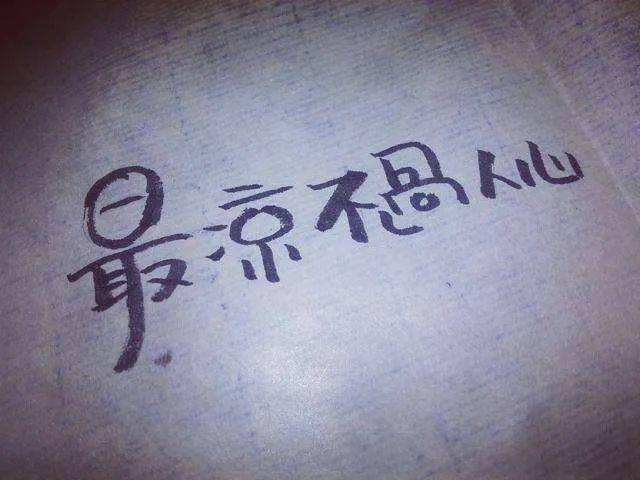 最凉不過人心